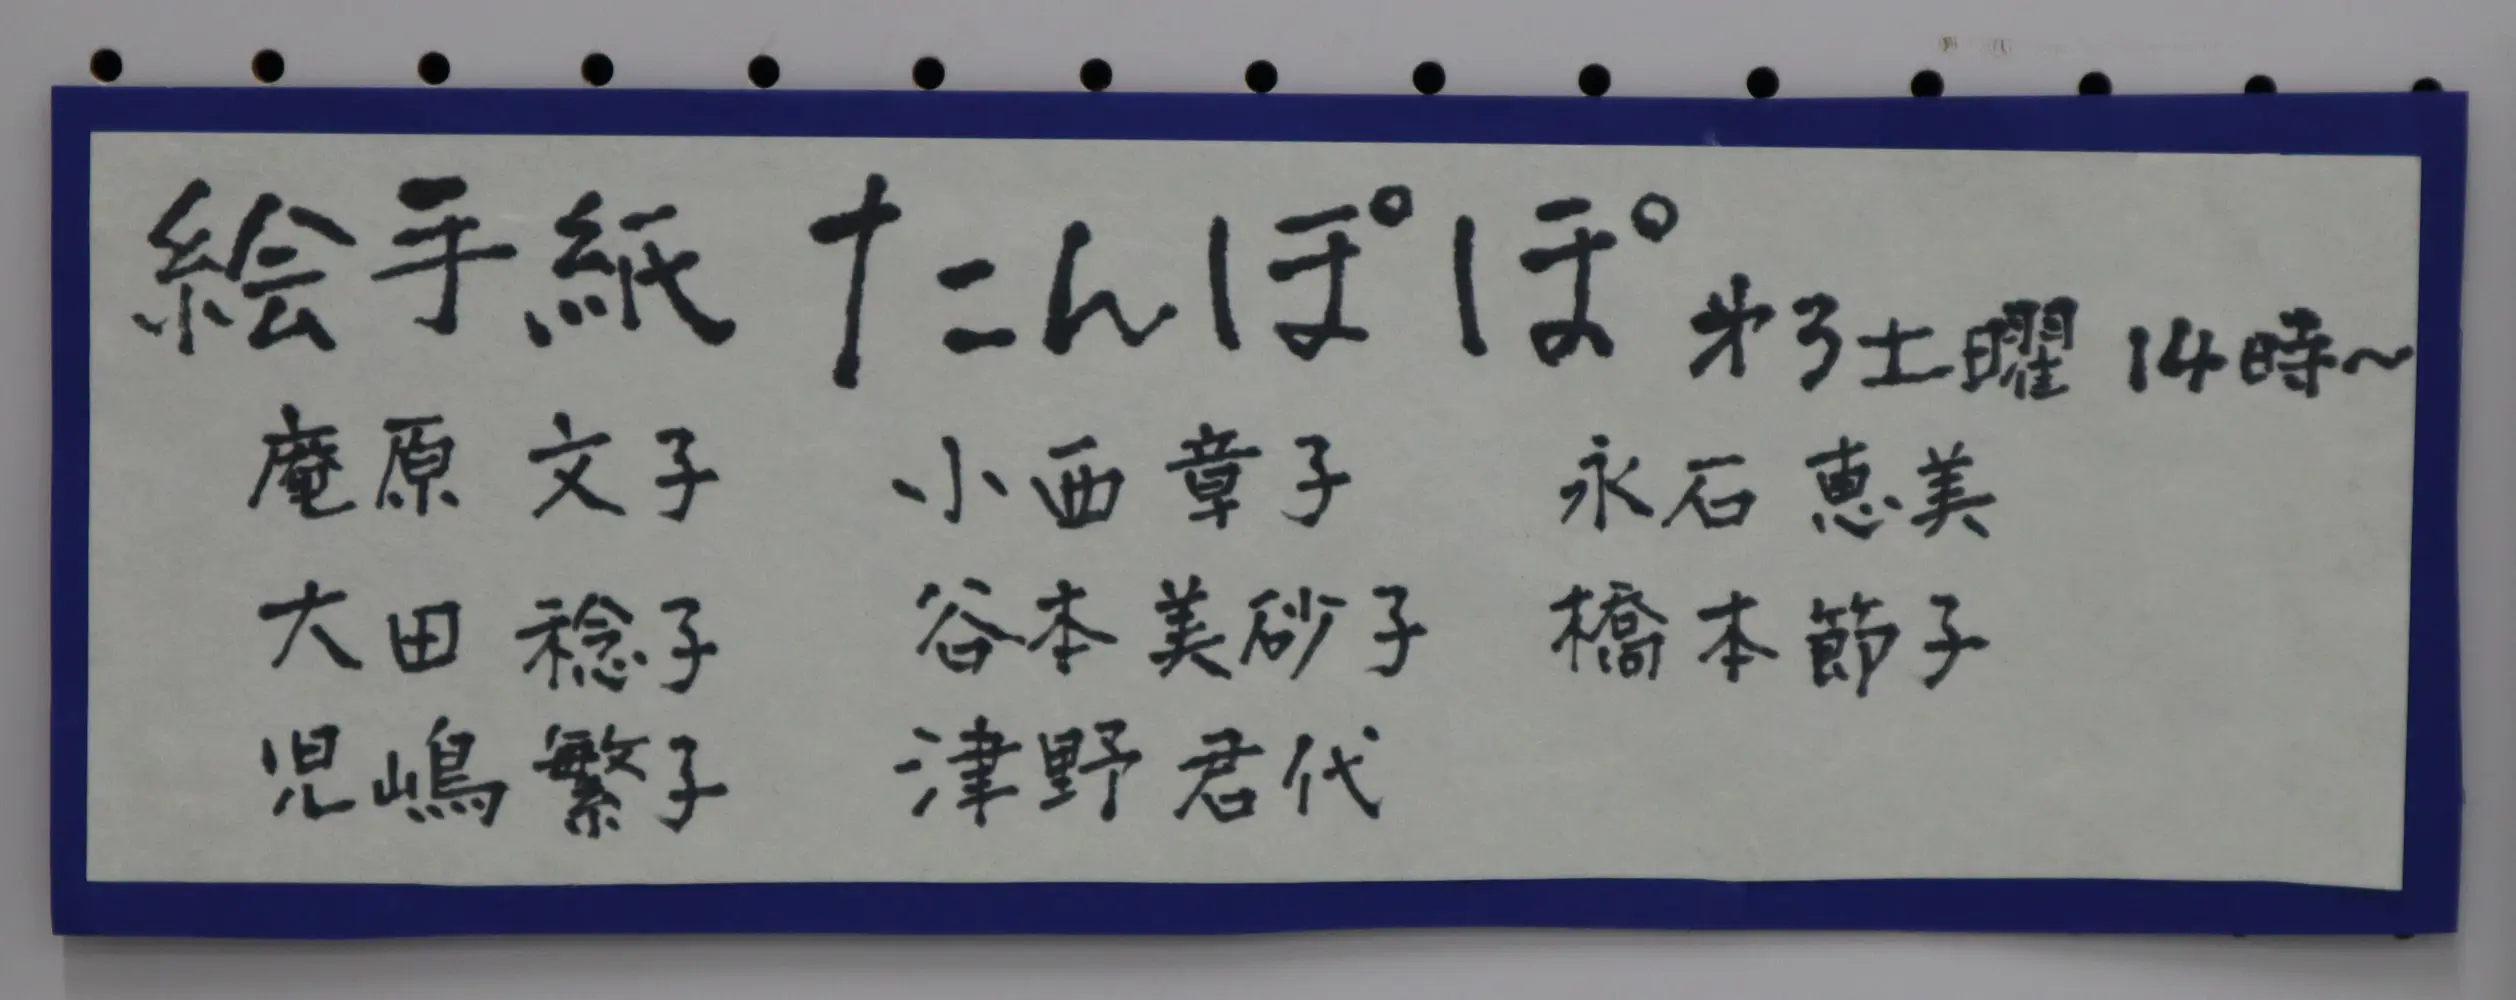 絵手紙 たんぽぽ 第3土曜 14時~
庵原 文子 小西 章子 永石 恵美
大田 稔子 谷本 美砂子 橋本 節子
児嶋 繁子 津野 君代